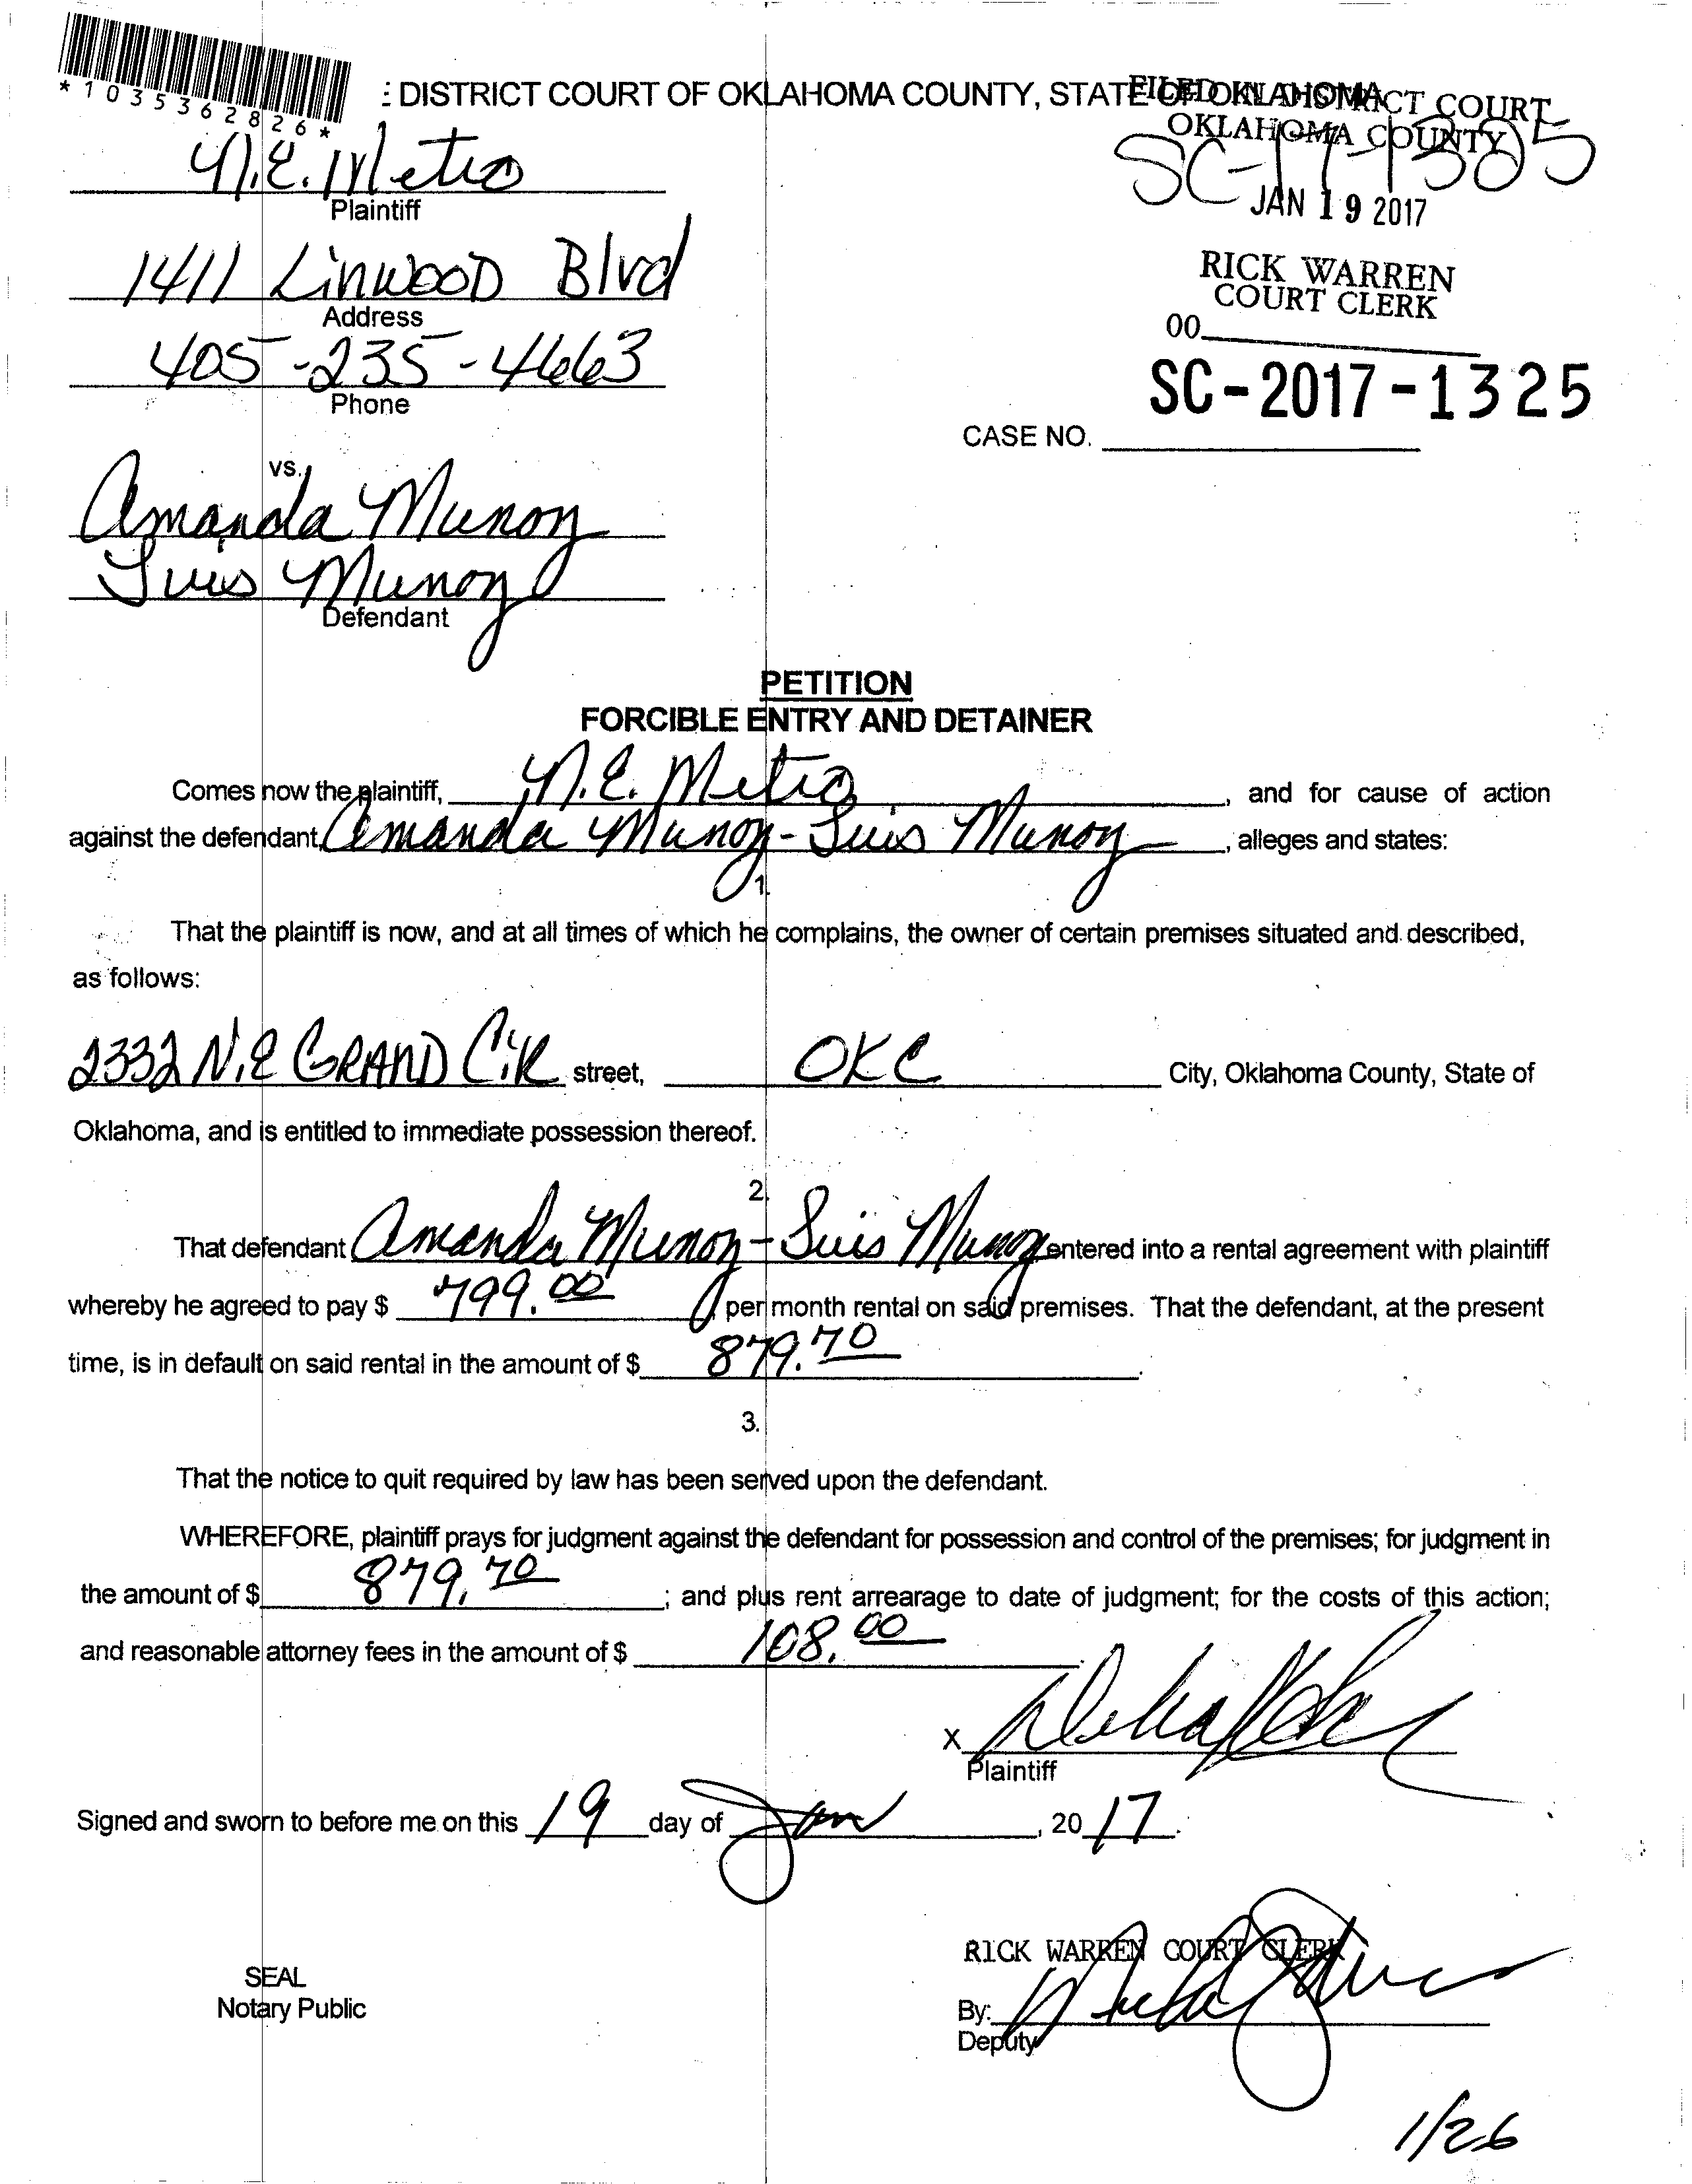 *1035362826*
: DISTRICT COURT OF OKLAHOMA COUNTY, STATE OF OKLAHOMA
FILED DISTRICT COURT
OKLAHOMA COUNTY
N.E. Metro
Plaintiff
SC-17-1325
JAN 19 2017
1411 LinwooD Blvd
Address
RICK WARREN
COURT CLERK
00
405-235-4663
Phone
SC-2017-1325
CASE NO.
vs.
Amanda Munoz
Luis Munoz
Defendant
PETITION
FORCIBLE ENTRY AND DETAINER
Comes now the plaintiff, N.E. Metro, and for cause of action
against the defendant, Amanda Munoz - Luis Munoz, alleges and states:
1.
That the plaintiff is now, and at all times of which he complains, the owner of certain premises situated and described,
as follows:
2332 N.E GRAND CiR street, OKC City, Oklahoma County, State of
Oklahoma, and is entitled to immediate possession thereof.
2.
That defendant Amanda Munoz - Luis Munoz entered into a rental agreement with plaintiff
whereby he agreed to pay $ 799.00, per month rental on said premises. That the defendant, at the present
time, is in default on said rental in the amount of $ 879.70.
3.
That the notice to quit required by law has been served upon the defendant.
WHEREFORE, plaintiff prays for judgment against the defendant for possession and control of the premises; for judgment in
the amount of $ 879.70; and plus rent arrearage to date of judgment; for the costs of this action;
and reasonable attorney fees in the amount of $ 108.00.
X
Plaintiff
Signed and sworn to before me on this 19 day of Jan, 2017.
RICK WARREN COURT CLERK
SEAL
Notary Public
By:
Deputy
1/26